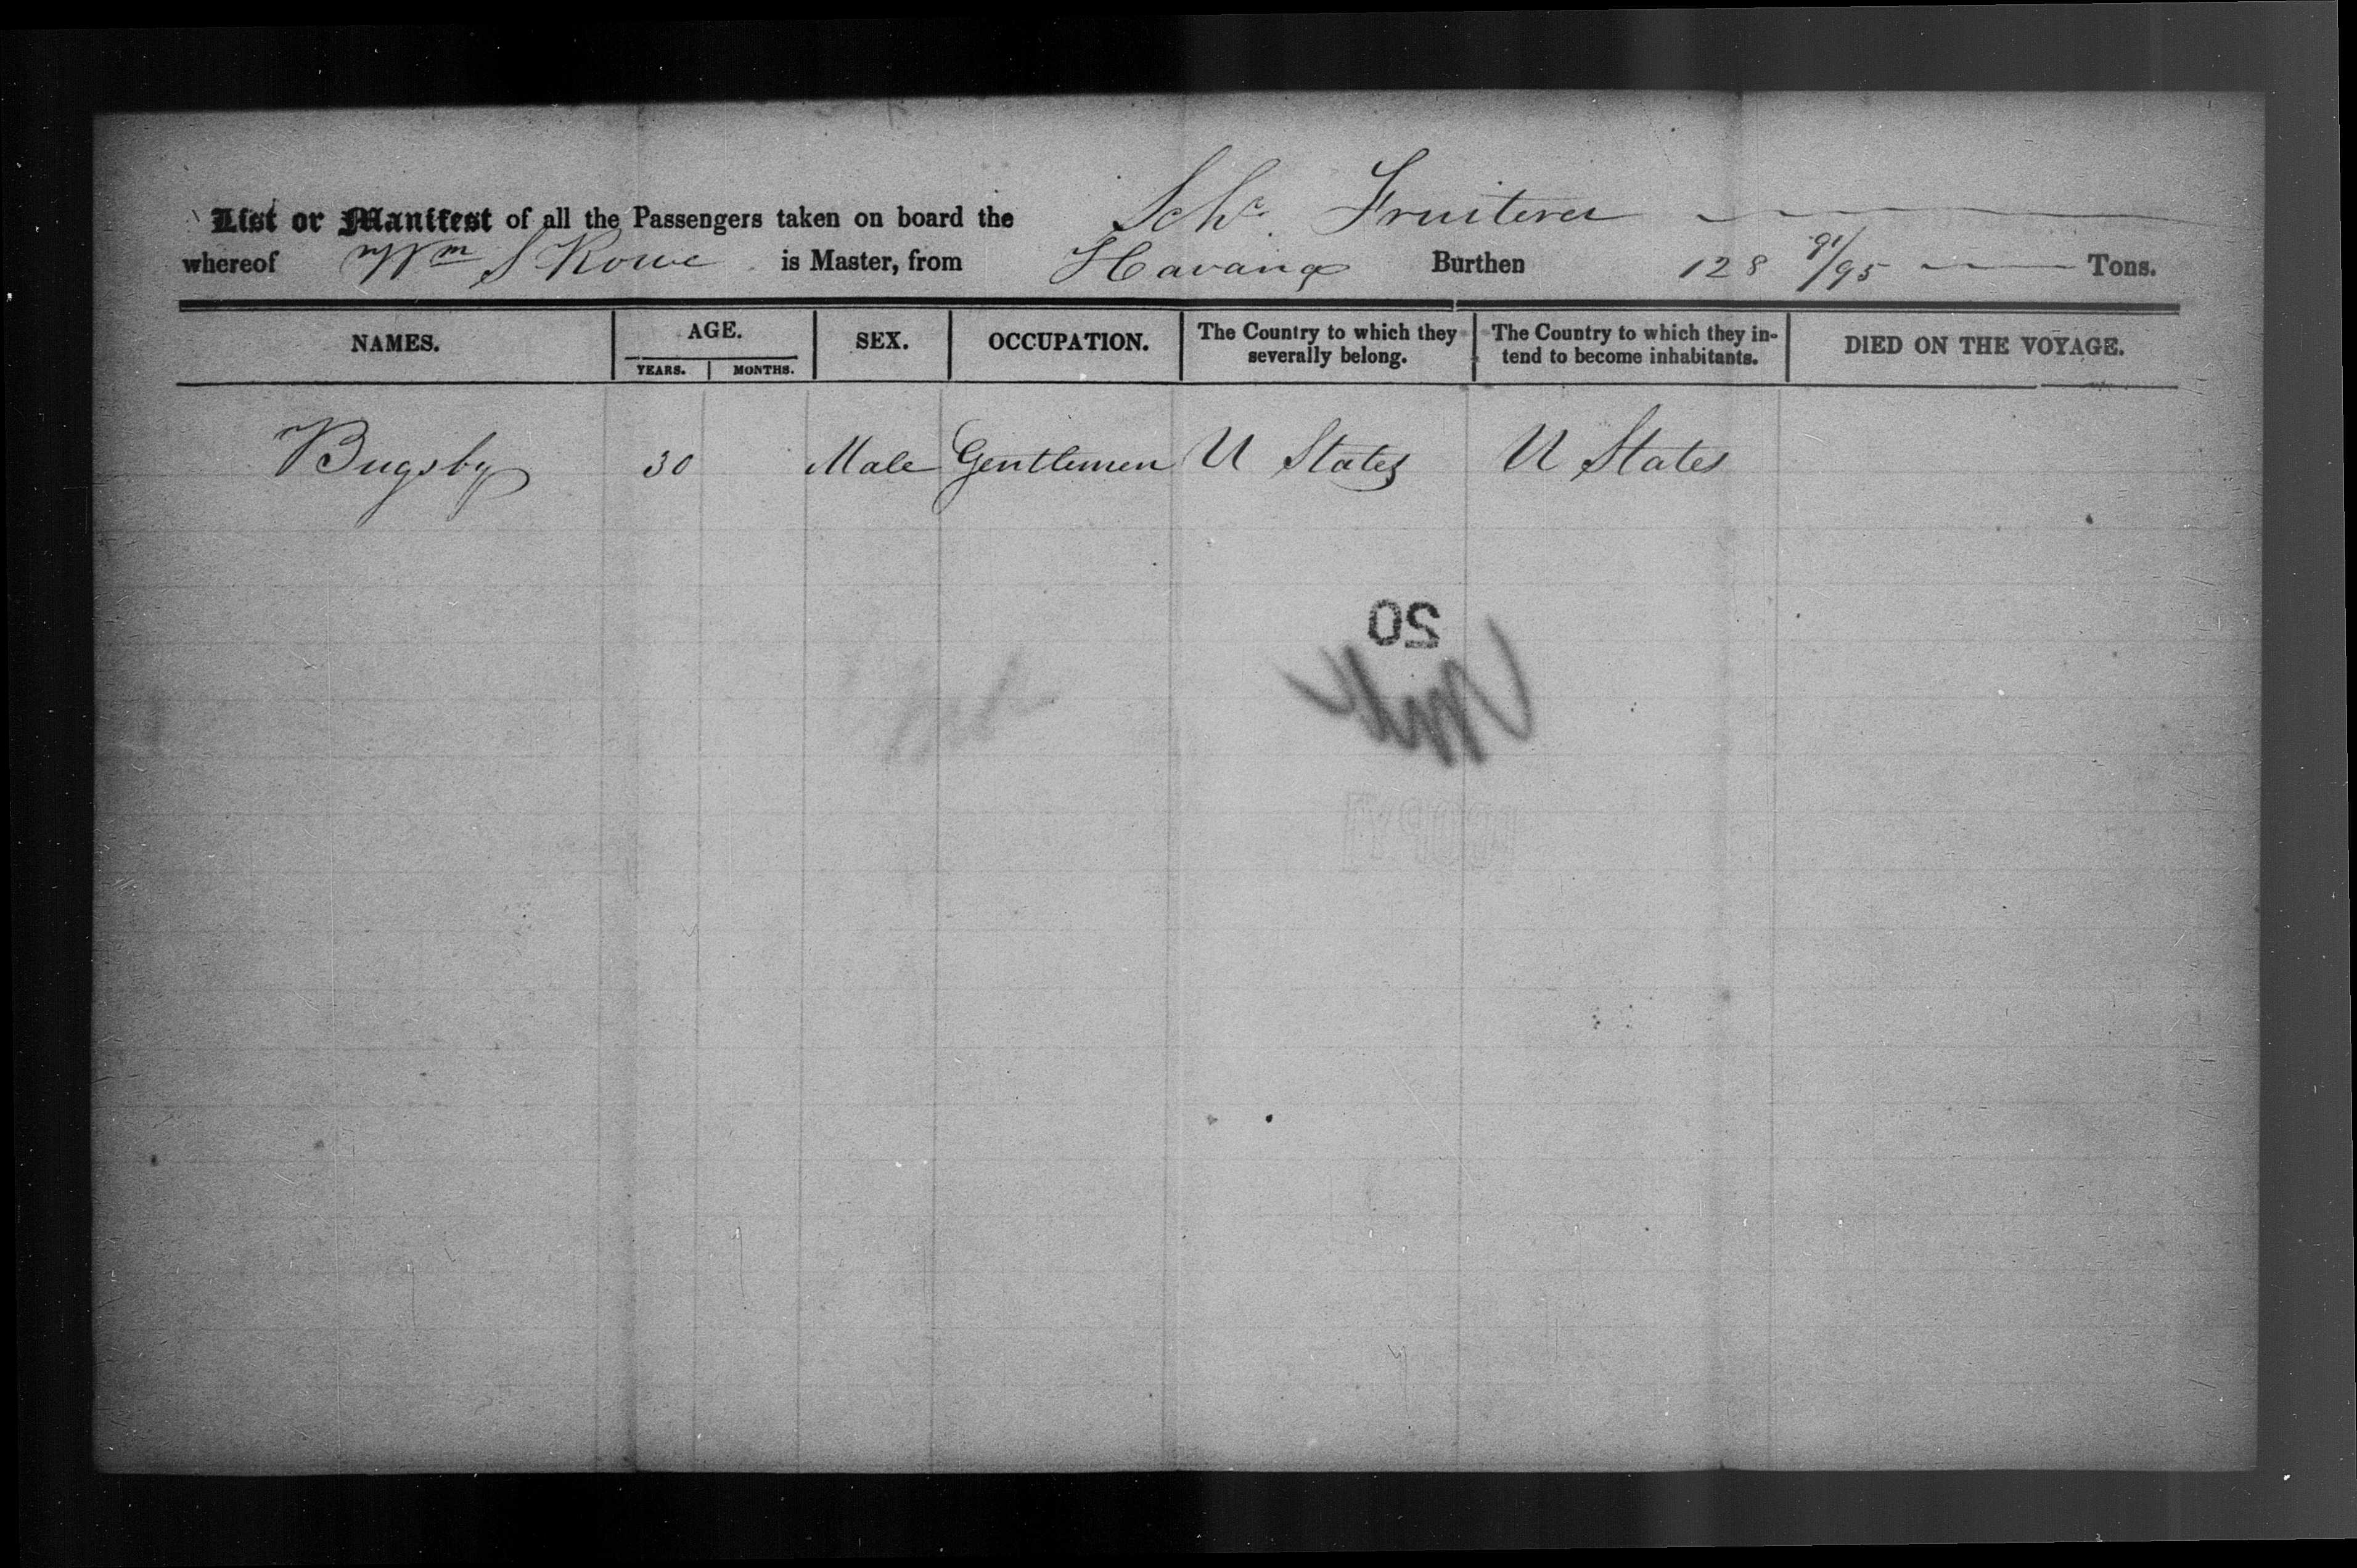 List or Manifest of all the Passengers taken on board the Schr. Fruiterer
whereof Wm S Rowe is Master, from Havana Burthen 128 91/95 Tons.
NAMES. AGE. SEX. OCCUPATION. The Country to which they severally belong. The Country to which they intend to become inhabitants. DIED ON THE VOYAGE.
YEARS. MONTHS.
Bugsby 30 Male Gentlemen U States U States
20